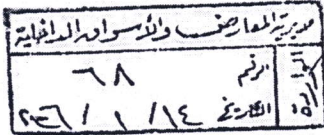 مديرية المعارض والأسواق الداخلية
الواردة
الرقم ٦٨
التاريخ ١٤ / ١ / ٢٠٢٦